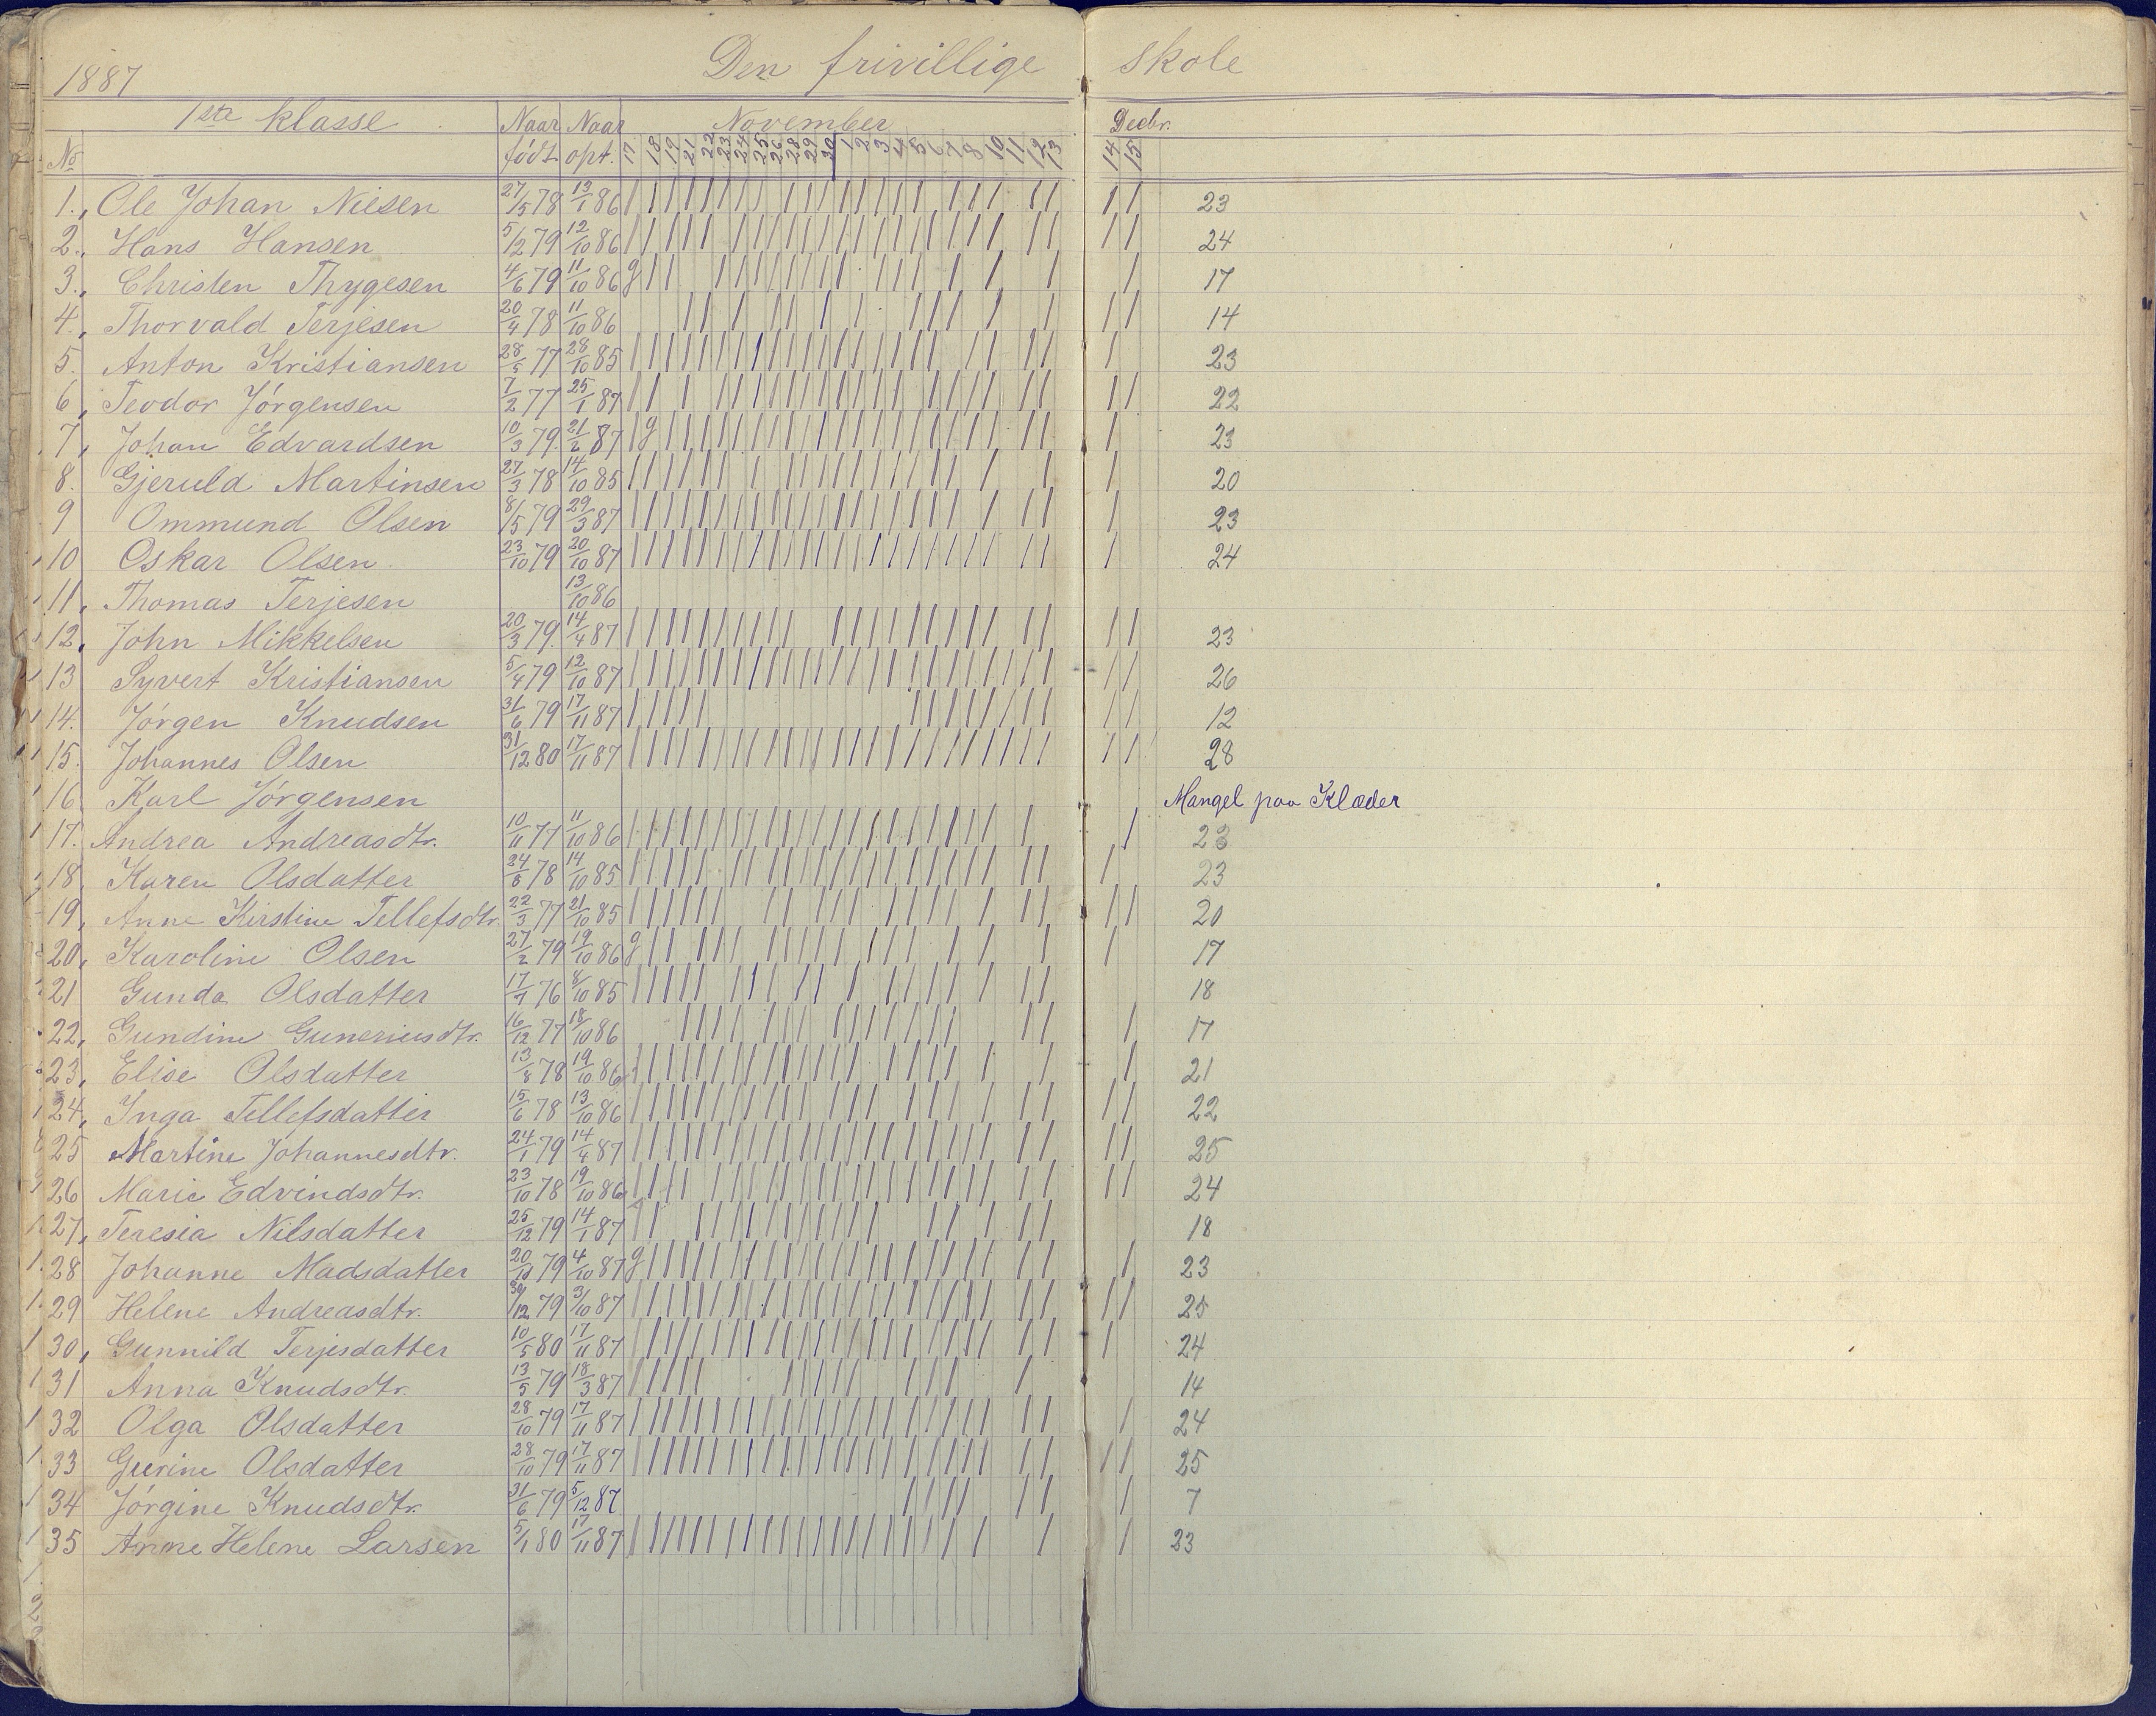 1887 Den frivillige skole
1ste klasse Naar Naar November Decbr.
No født opt. 17 18 19 21 22 23 24 25 26 28 29 30 1 2 3 4 5 6 7 8 10 11 12 13 14 15
1. Ole Johan Nilsen 27/5 78 13/1 86 23
2. Hans Hansen 5/12 79 12/10 86 24
3. Christen Thygesen 4/6 79 11/10 86 g 17
4. Thorvald Terjesen 20/4 78 11/10 86 14
5. Anton Kristiansen 28/5 77 28/10 85 23
6 Teodor Jörgensen 7/2 77 25/1 87 22
7, Johan Edvardsen 10/3 79. 21/2 87 g 23
8. Gjeruld Martinsen 27/3 78 14/10 85 20
9 Ommund Olsen 8/5 79 29/3 87 23
10 Oskar Olsen 23/10 79 20/10 87 24
11, Thomas Terjesen 13/10 86
12, John Mikkelsen 20/3 79. 14/4 87 23
13 Syvert Kristiansen 5/4 79 12/10 87 26
14. Jörgen Knudsen 31/6 79 17/11 87 12
15. Johannes Olsen 31/12 80 17/11 87 28
16 Karl Jörgensen Mangel paa Klæder
17. Andrea Andreasdtr. 10/11 77 11/10 86 23
18, Karen Olsdatter 24/8 78 14/10 85 23
19, Anne Kirstine Tellefsdtr. 22/3 77 21/10 85 20
20, Karoline Olsen 27/2 79 19/10 86 g 17
21 Gunda Olsdatter 17/7 76 8/10 85 18
22, Gundine Guneriusdtr. 16/12 77 18/10 86 17
23, Elise Olsdatter 13/8 78 19/10 86 21
24, Inga Tellefsdatter 15/6 78 13/10 86 22
25 Martine Johannesdtr. 24/1 79 14/4 87 25
26 Marie Edvindsdtr. 23/10 78 19/10 86 24
27, Teresia Nilsdatter 25/12 79 14/1 87 18
28 Johanne Madsdatter 20/10 79 4/10 87 g 23
29 Helene Andreasdtr. 30/12 79 3/10 87 25
30, Gunnild Terjesdatter 10/5 80 17/11 87 24
31 Anna Knudsdtr. 13/5 79 18/3 87 14
32 Olga Olsdatter 28/10 79 17/11 87 24
33 Gurine Olsdatter 28/10 79 17/11 87 25
34 Jörgine Knudsdtr. 31/6 79 5/12 87 7
35 Anne Helene Larsen 5/1 80 17/11 87 23